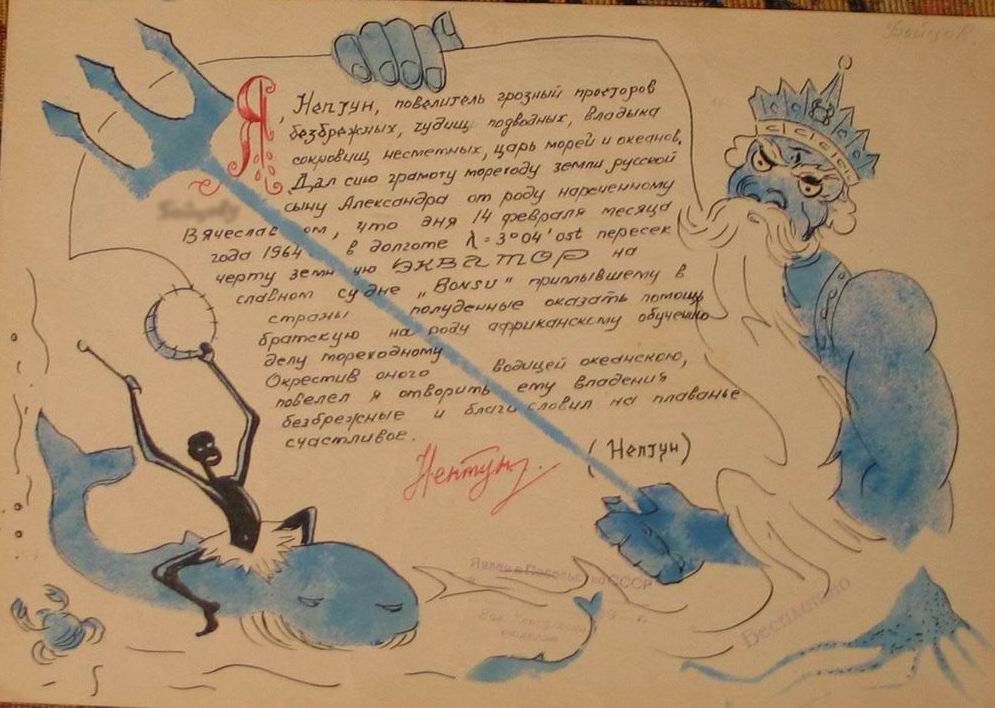 Бойцов.
Я, Нептун, повелитель грозный просторов
безбрежных, чудищ подводных, владыка
сокровищ несметных, царь морей и океанов.
Дал сию грамоту мореходу земли русской
сыну Александра от роду нареченному
Вячеслав ом, что дня 14 февраля месяца
года 1964 в долготе λ=3°04' ost пересек
черту земн ую ЭКВАТОР на
славном су дне „Bonsu" приплывшему в
страны полуденные оказать помощь
братскую на роду африканскому обучению
делу мореходному
Окрестив оного водицей океанскою,
повелел я отворить ему владения
безбрежные и благи словил на плаванье
счастливое.
Нептун.
(Нептун)
Явлен в Посольство СССР
Бесплатно